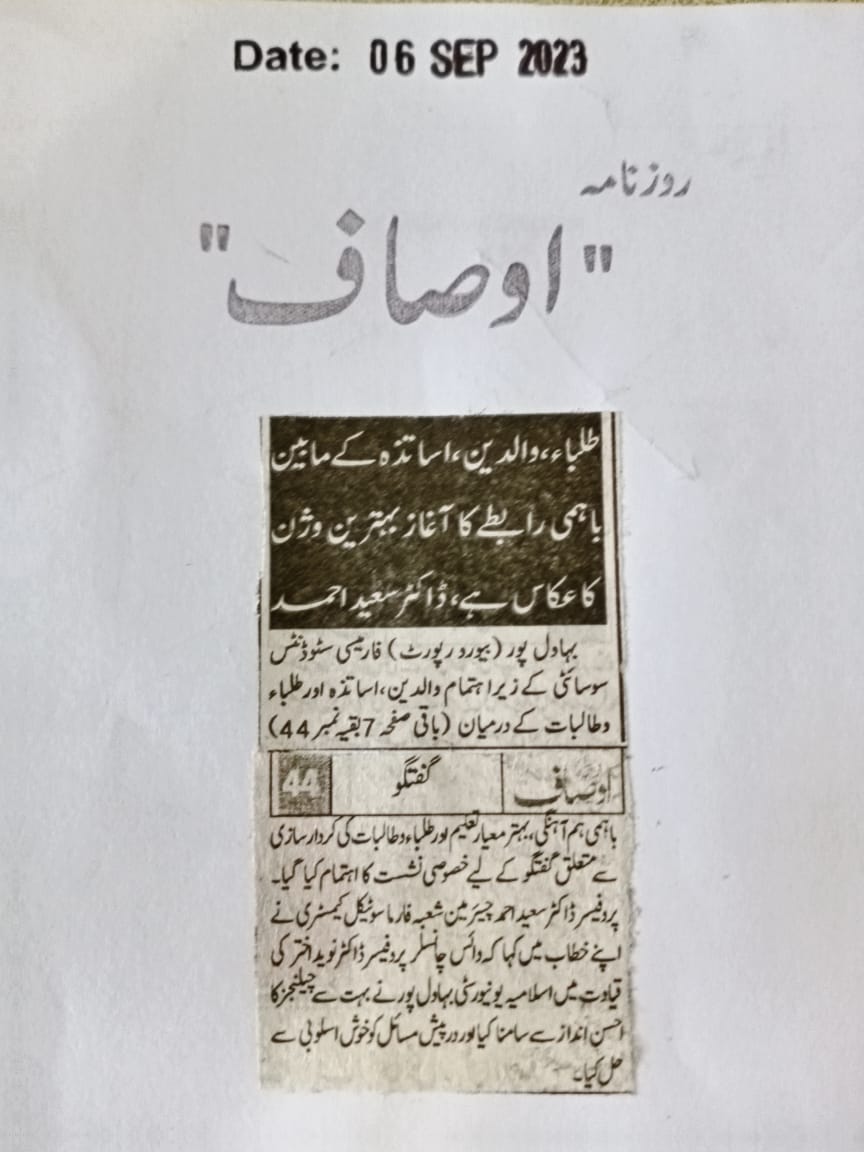 Date: 06 SEP 2023
روزنامہ
"اوصاف"
طلباء، والدین، اساتذہ کے مابین
باہمی رابطے کا آغاز بہترین وژن
کا عکاس ہے، ڈاکٹر سعید احمد
بہاول پور (بیورو رپورٹ) فارمیسی سٹوڈنٹس
سوسائٹی کے زیر اہتمام والدین، اساتذہ اور طلباء
وطالبات کے درمیان (باقی صفحہ 7 بقیہ نمبر 44)
اوصاف گفتگو 44
باہمی ہم آہنگی، بہتر معیار تعلیم اور طلباء وطالبات کی کردار سازی
سے متعلق گفتگو کے لیے خصوصی نشست کا اہتمام کیا گیا۔
پروفیسر ڈاکٹر سعید احمد چیئرمین شعبہ فارماسوٹیکل کیمسٹری نے
اپنے خطاب میں کہا کہ وائس چانسلر پروفیسر ڈاکٹر نوید اختر کی
قیادت میں اسلامیہ یونیورسٹی بہاول پور نے بہت سے چیلنجز کا
احسن انداز سے سامنا کیا اور درپیش مسائل کو خوش اسلوبی سے
حل کیا۔